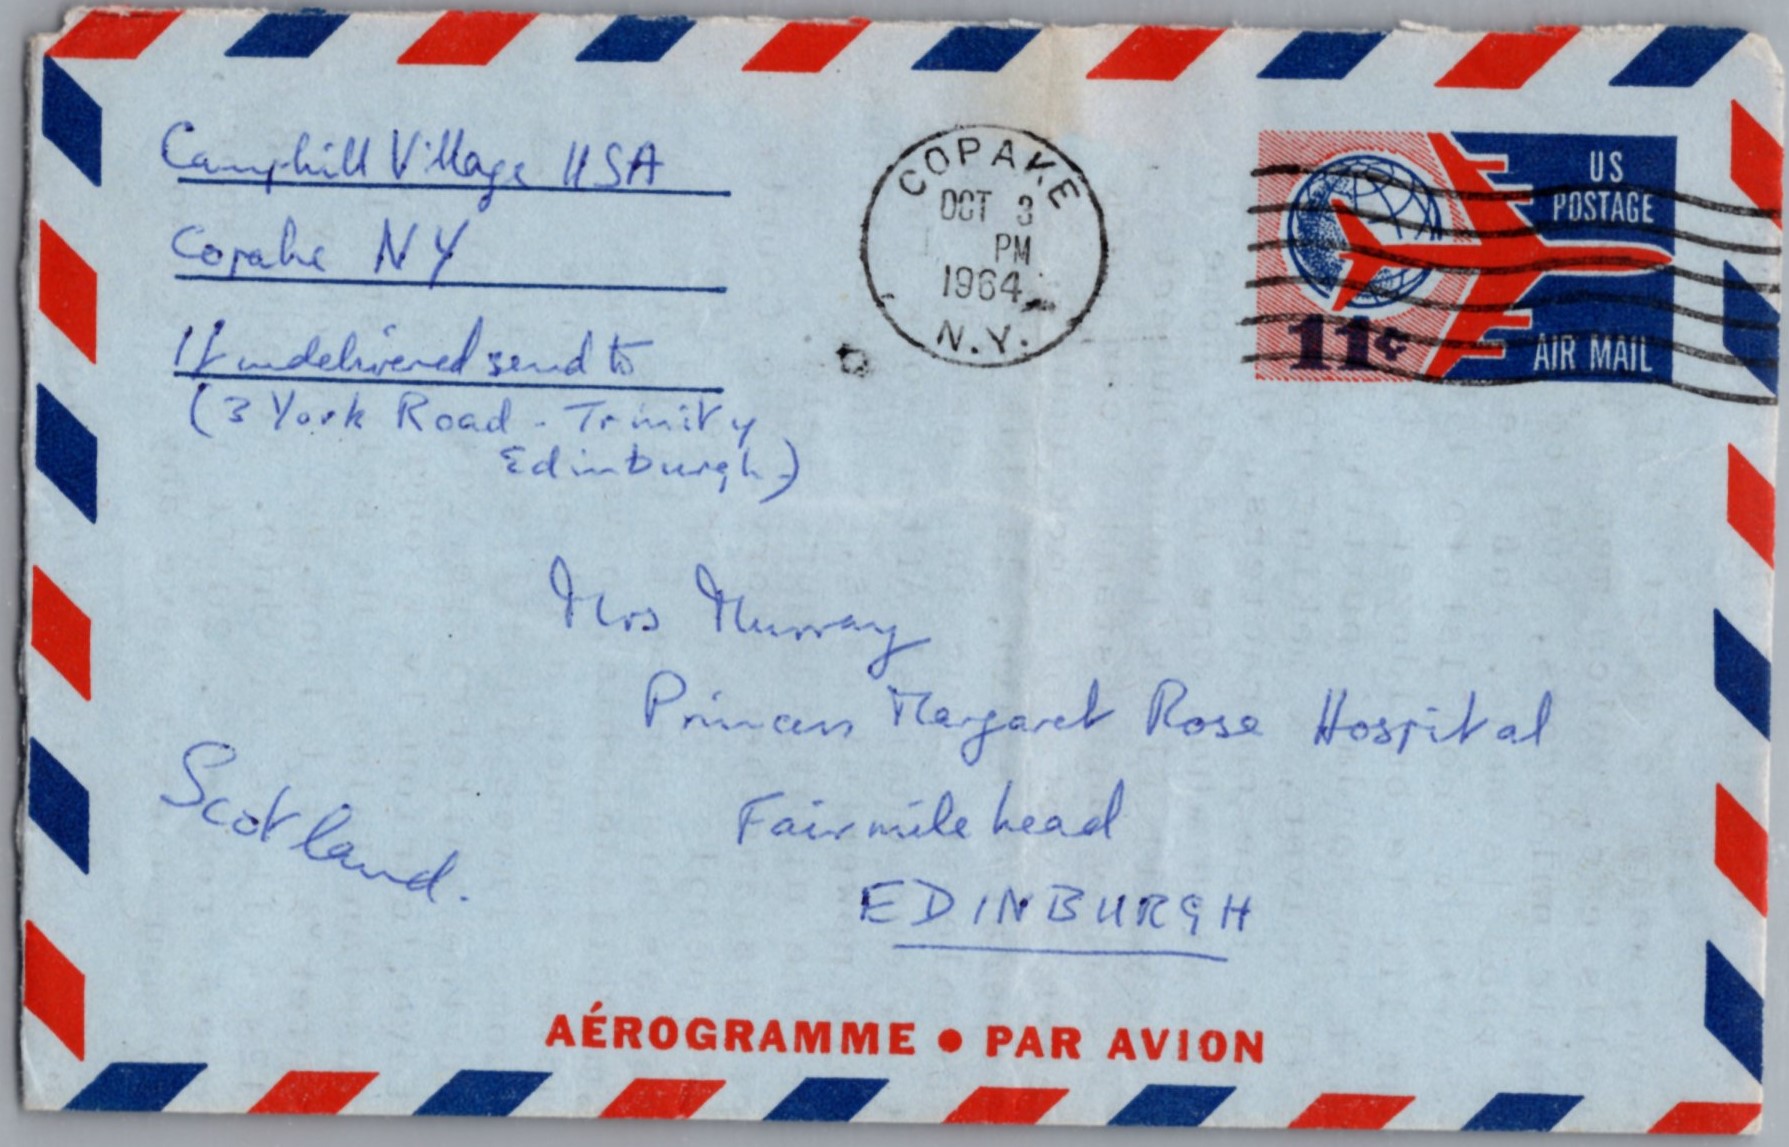 Camphill Village USA
Copake NY
If undelivered send to
(3 York Road - Trinity
Edinburgh)
COPAKE
OCT 3
PM
1964
N.Y.
US
POSTAGE
11¢
AIR MAIL
Mrs Murray
Princess Margaret Rose Hospital
Fairmilehead
EDINBURGH
Scotland.
AÉROGRAMME • PAR AVION